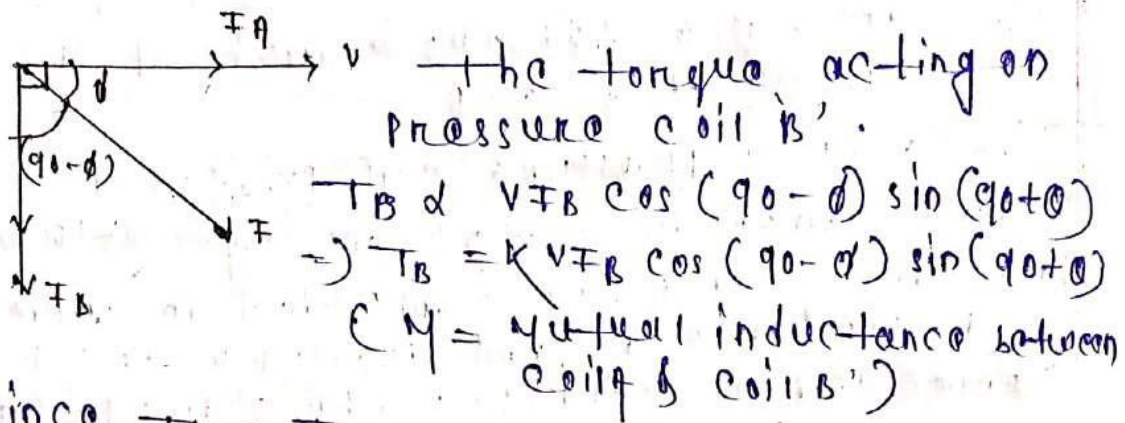 I A
V
The torque acting on
pressure coil 'B'.
ϕ
(90-ϕ)
T_B α V I_B cos (90-ϕ) sin (90+θ)
I
=) T_B = K V I_B cos (90-ϕ) sin (90+θ)
I_B
(M = Mutual inductance between
coil A & coil 'B')
ince